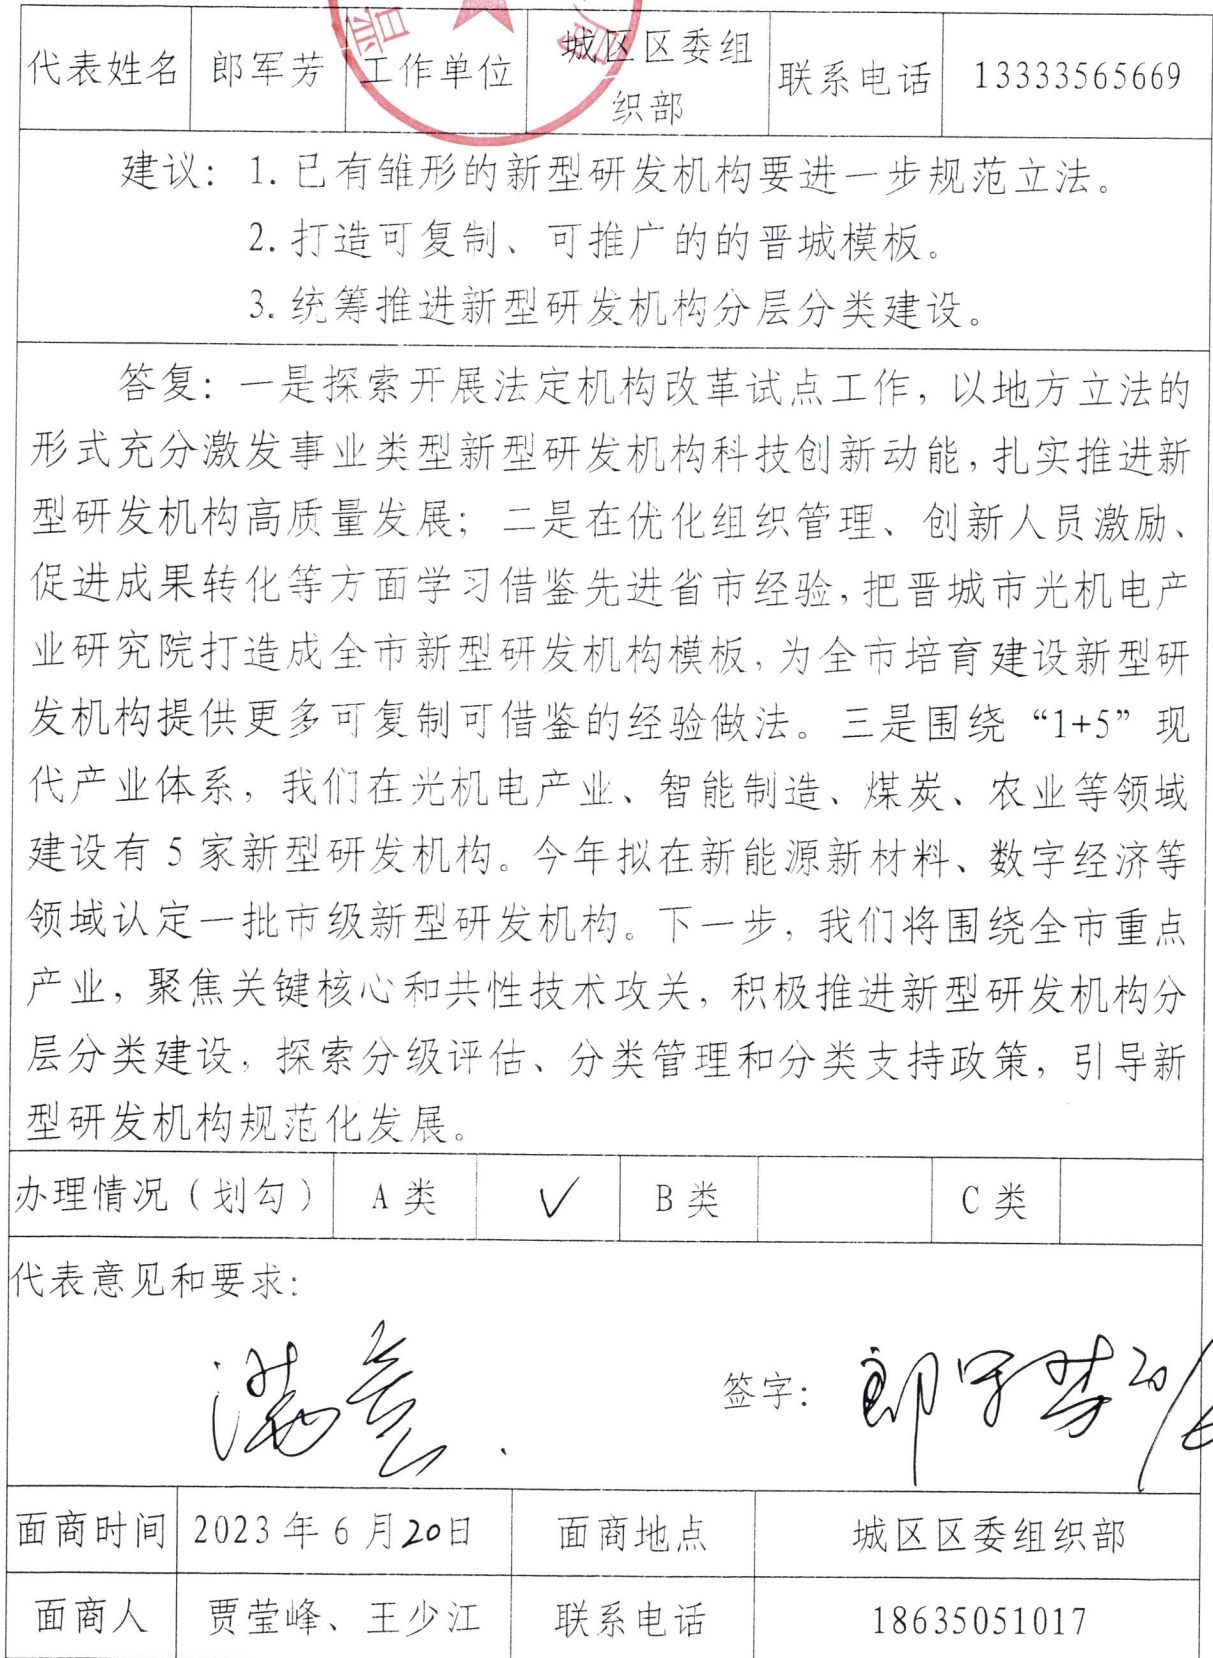 晋 局
代表姓名 郎军芳 工作单位 城区区委组织部 联系电话 13333565669
建议：1.已有雏形的新型研发机构要进一步规范立法。
2.打造可复制、可推广的的晋城模板。
3.统筹推进新型研发机构分层分类建设。
答复：一是探索开展法定机构改革试点工作，以地方立法的
形式充分激发事业类型新型研发机构科技创新动能，扎实推进新
型研发机构高质量发展；二是在优化组织管理、创新人员激励、
促进成果转化等方面学习借鉴先进省市经验，把晋城市光机电产
业研究院打造成全市新型研发机构模板，为全市培育建设新型研
发机构提供更多可复制可借鉴的经验做法。三是围绕“1+5”现
代产业体系，我们在光机电产业、智能制造、煤炭、农业等领域
建设有 5 家新型研发机构。今年拟在新能源新材料、数字经济等
领域认定一批市级新型研发机构。下一步，我们将围绕全市重点
产业，聚焦关键核心和共性技术攻关，积极推进新型研发机构分
层分类建设，探索分级评估、分类管理和分类支持政策，引导新
型研发机构规范化发展。
办理情况（划勾） A 类 √ B 类 C 类
代表意见和要求：
满意. 签字：郎军芳
面商时间 2023 年 6 月20日 面商地点 城区区委组织部
面商人 贾莹峰、王少江 联系电话 18635051017